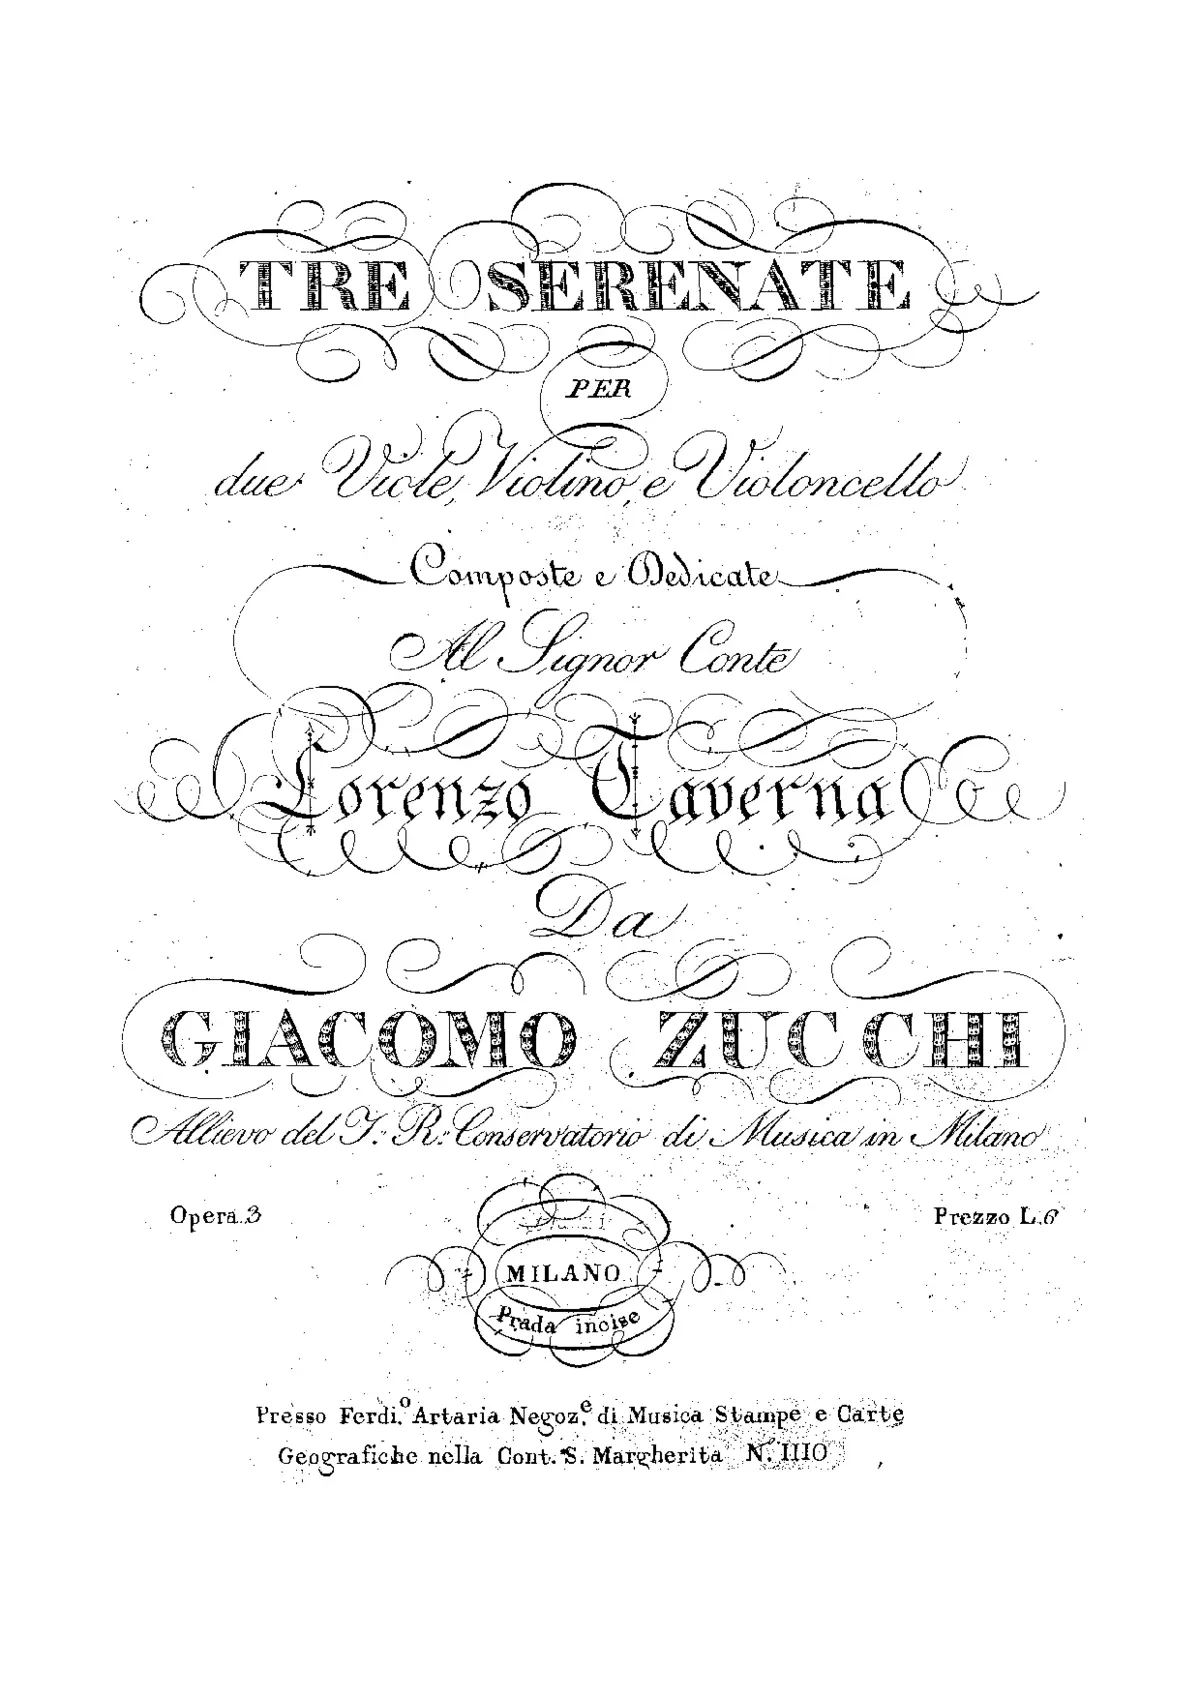 TRE SERENATE
PER
due Viole, Violino, e Violoncello
Composte e Dedicate
Al Signor Conte
Lorenzo Taverna
Da
GIACOMO ZUCCHI
Allievo del I: R: Conservatorio di Musica in Milano
Opera.3
Prezzo L.6
MILANO
Prada incise
Presso Ferdi.º Artaria Negoz.e di Musica Stampe e Carte
Geografiche nella Cont. S. Margherita N.º 1110